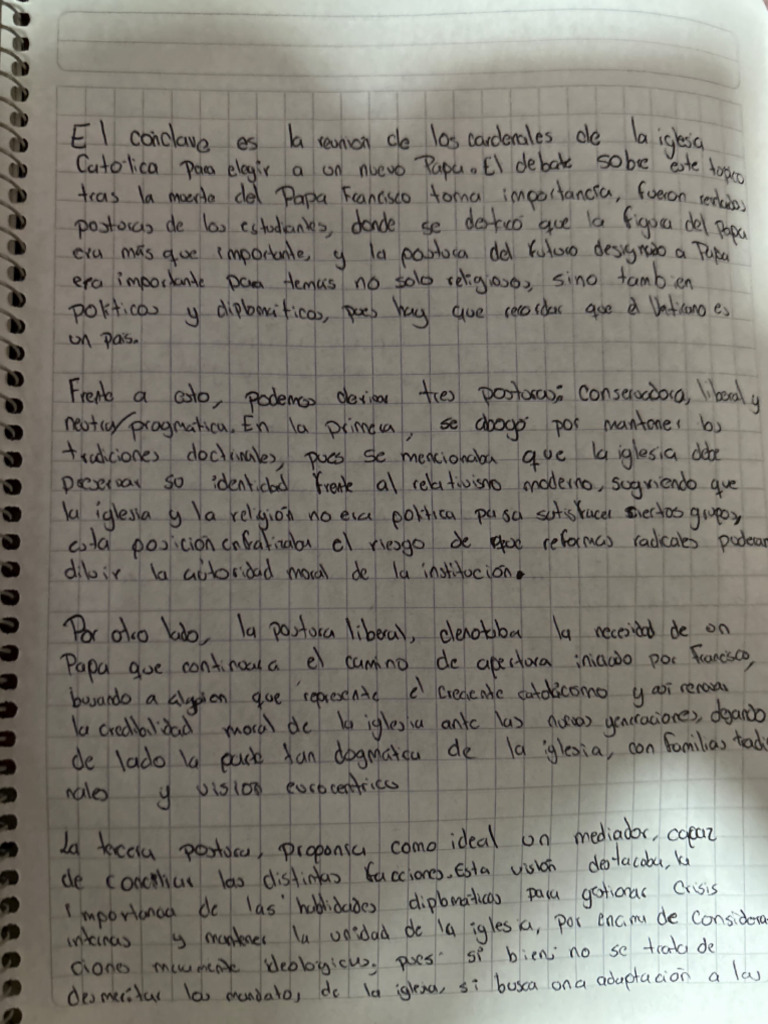 El conclave es la reunion de los cardenales de la iglesia
Catolica para elegir a un nuevo Papa. El debate sobre este topico
tras la muerte del Papa Francisco toma importancia, fueron varias
posturas de los estudiantes, donde se destacó que la figura del Papa
era más que importante, y la postura del futuro designado a Papa
era importante para temas no solo religiosos, sino tambien
politicos y diplomáticos, pues hay que recordar que el Vaticano es
un país.
Frente a esto, podemos derivar tres posturas: conservadora, liberal y
neutra/pragmatica. En la primera, se abogó por mantener las
tradiciones doctrinales, pues se mencionaba que la iglesia debe
preservar su identidad frente al relativismo moderno, sugiriendo que
la iglesia y la religión no era politica para satisfacer ciertos grupos,
esta posición enfatizaba el riesgo de que reformas radicales puedean
diluir la autoridad moral de la institución.
Por otro lado, la postura liberal, denotaba la necesidad de un
Papa que continuara el camino de apertura iniciado por Francisco,
buscando a alguien que represente el creciente catolicismo y asi renovar
la credibilidad moral de la iglesia ante las nuevas generaciones, dejando
de lado la parte tan dogmatica de la iglesia, con familias tradi
nales y vision eurocentrica
La tercera postura, proponía como ideal un mediador, capaz
de conciliar las distintas facciones. Esta visión destacaba, la
importancia de las habilidades diplomáticas para gestionar crisis
internas y mantener la unidad de la iglesia, por encima de considera
ciones meramente ideologicas, pues si bien no se trata de
desmeritar los mandatos, de la iglesia, si busca una adaptación a las